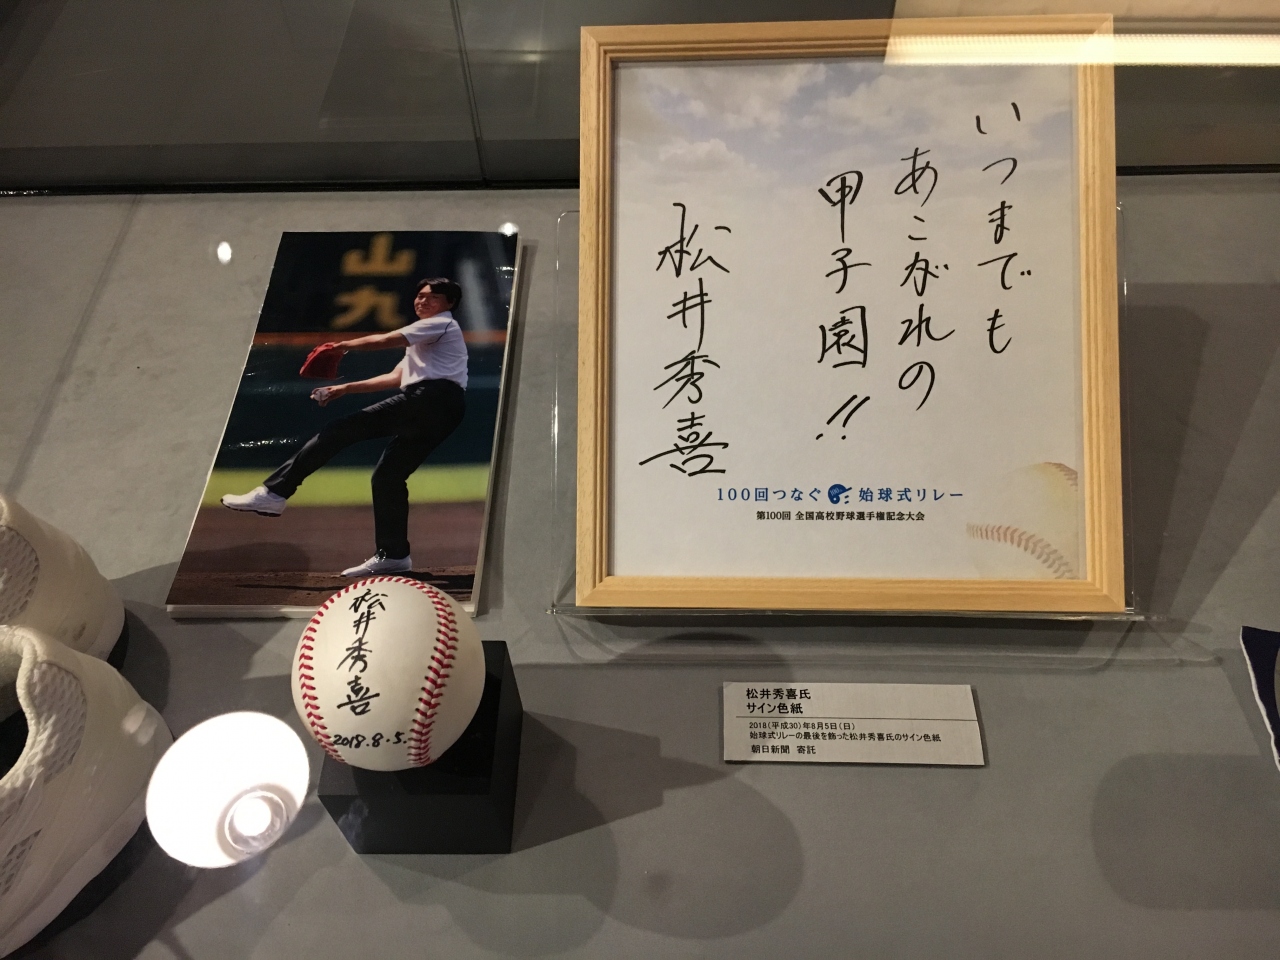 山
九
いつまでも
あこがれの
甲子園!!
松井秀喜
100回つなぐ 始球式リレー
第100回 全国高校野球選手権記念大会
松井秀喜
2018.8.5.
松井秀喜氏
サイン色紙
2018(平成30)年8月5日(日)
始球式リレーの最後を飾った松井秀喜氏のサイン色紙
朝日新聞 寄託